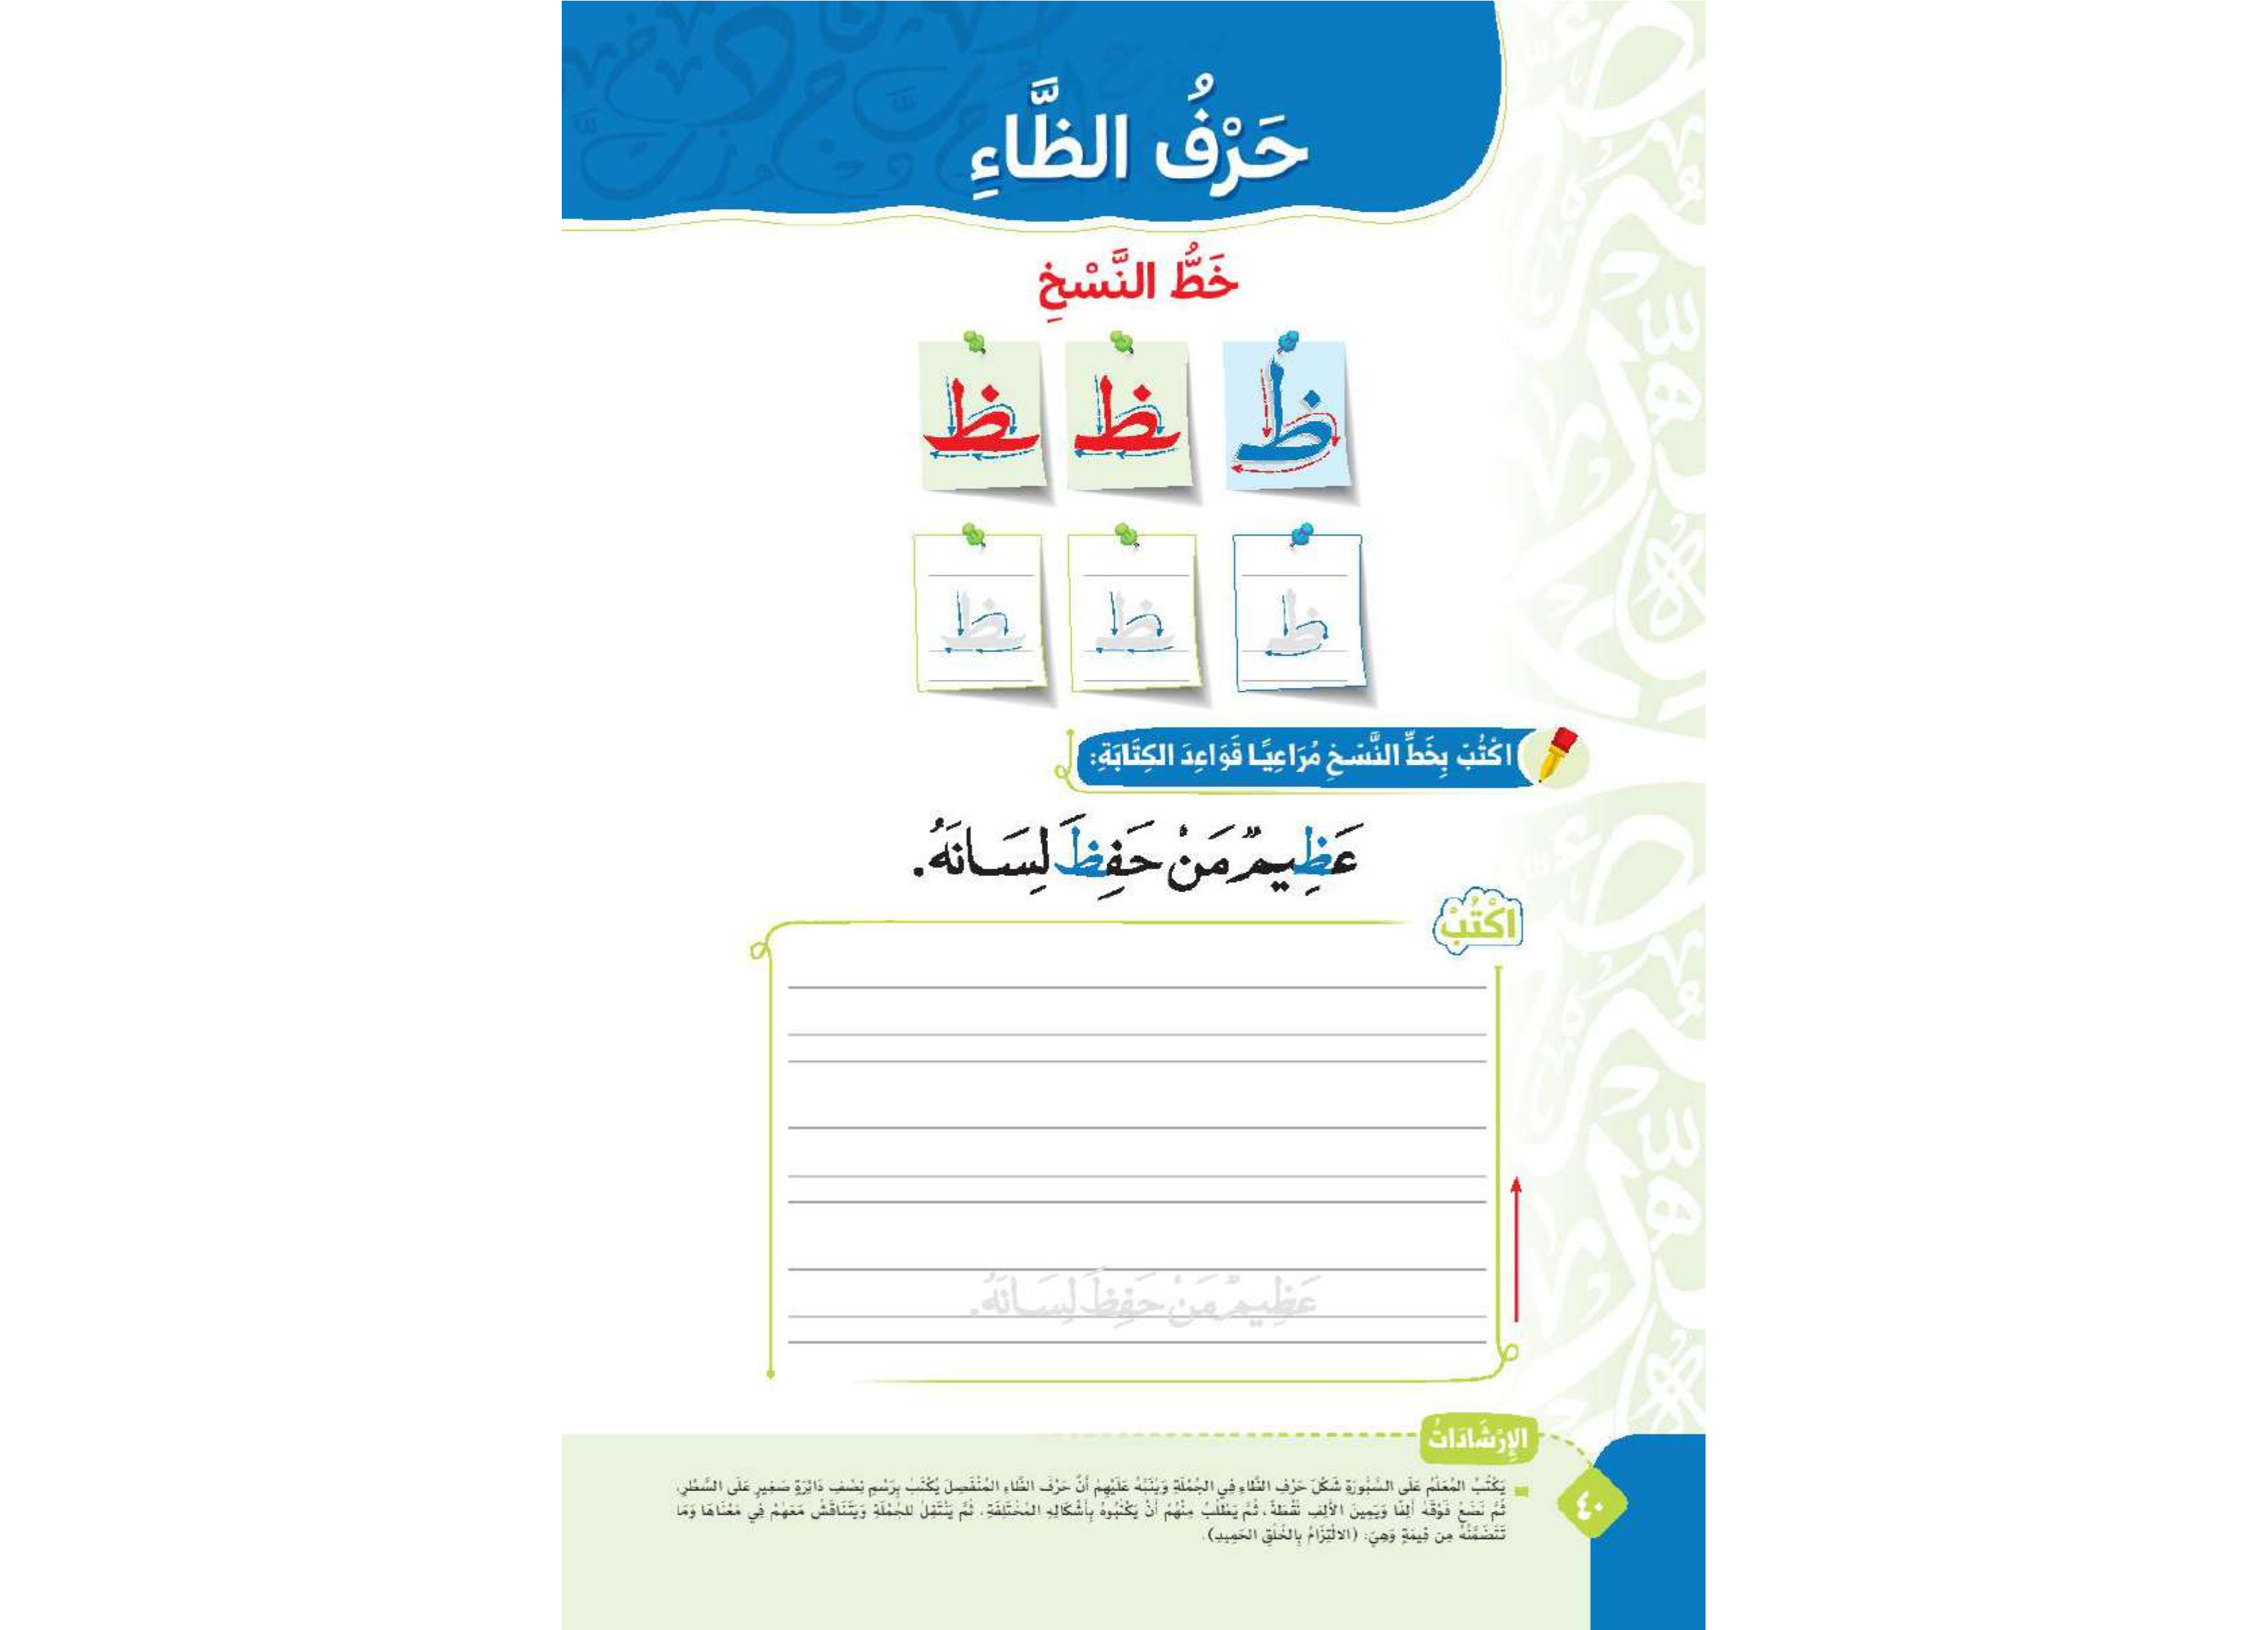 حَرْفُ الظَّاءِ
خَطُّ النَّسْخِ
ظ ظ ظ
ظ ظ ظ
اكْتُبْ بِخَطِّ النَّسْخِ مُرَاعِيًا قَوَاعِدَ الكِتَابَةِ:
عَظِيمٌ مَنْ حَفِظَ لِسَانَهُ.
اكْتُبْ
عَظِيمٌ مَنْ حَفِظَ لِسَانَهُ.
الإِرْشَادَاتُ
يَكْتُبُ المُعَلِّمُ عَلَى السَّبُّورَةِ شَكْلَ حَرْفِ الظَّاءِ فِي الجُمْلَةِ وَيُنَبِّهُ عَلَيْهِمْ أَنَّ حَرْفَ الظَّاءِ المُنْفَصِلَ يُكْتَبُ بِرَسْمِ نِصْفِ دَائِرَةٍ صَغِيرٍ عَلَى السَّطْرِ،
ثُمَّ نَضَعُ فَوْقَهُ أَلِفًا وَيَمِينَ الأَلِفِ نُقْطَةً، ثُمَّ يَطْلُبُ مِنْهُمْ أَنْ يَكْتُبُوهُ بِأَشْكَالِهِ المُخْتَلِفَةِ، ثُمَّ يَنْتَقِلُ لِلجُمْلَةِ وَيَتَنَاقَشُ مَعَهُمْ فِي مَعْنَاهَا وَمَا
تَتَضَمَّنُهُ مِن قِيمَةٍ وَهِيَ: (الالْتِزَامُ بِالخُلُقِ الحَمِيدِ).
٤٠